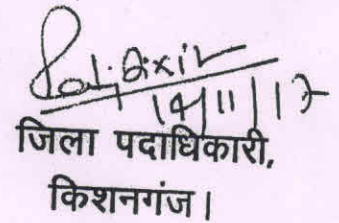 14/11/17
जिला पदाधिकारी,
किशनगंज।